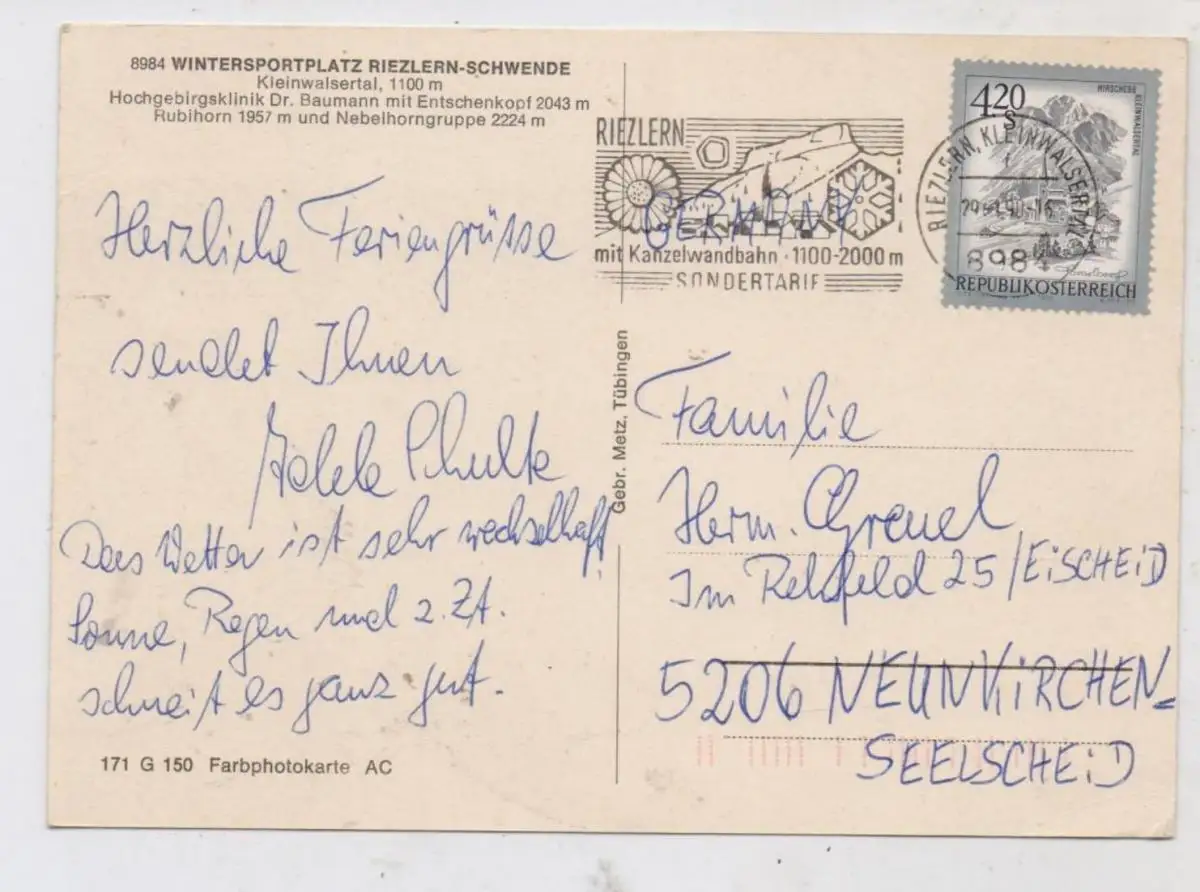 8984 WINTERSPORTPLATZ RIEZLERN-SCHWENDE
Kleinwalsertal, 1100 m
Hochgebirgsklinik Dr. Baumann mit Entschenkopf 2043 m
Rubihorn 1957 m und Nebelhorngruppe 2224 m
Herzliche Feriengrüsse
sendet Ihnen
Adele Schulte
Das Wetter ist sehr wechselhaft!
Sonne, Regen und z. Zt.
schneit es ganz gut.
171 G 150 Farbphotokarte AC
Gebr. Metz, Tübingen
RIEZLERN
GERMANY
mit Kanzelwandbahn · 1100-2000 m
SONDERTARIF
RIEZLERN, KLEINWALSERTAL
8984
4.20
S
HIRSCHEGG
KLEINWALSERTAL
REPUBLIK ÖSTERREICH
Familie
Herm. Greuel
Im Rehfeld 25 / EiSCHEiD
5206 NEUNKiRCHEN-
SEELSCHEiD